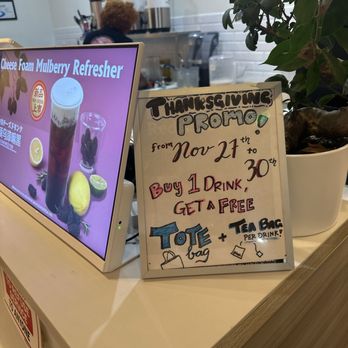 Cheese Foam Mulberry Refresher
THANKSGIVING
PROMO!
from Nov 27th to
30th
BUY 1 DRINK,
GET A FREE
TOTE
bag
+ TEA BAG
PER DRINK!